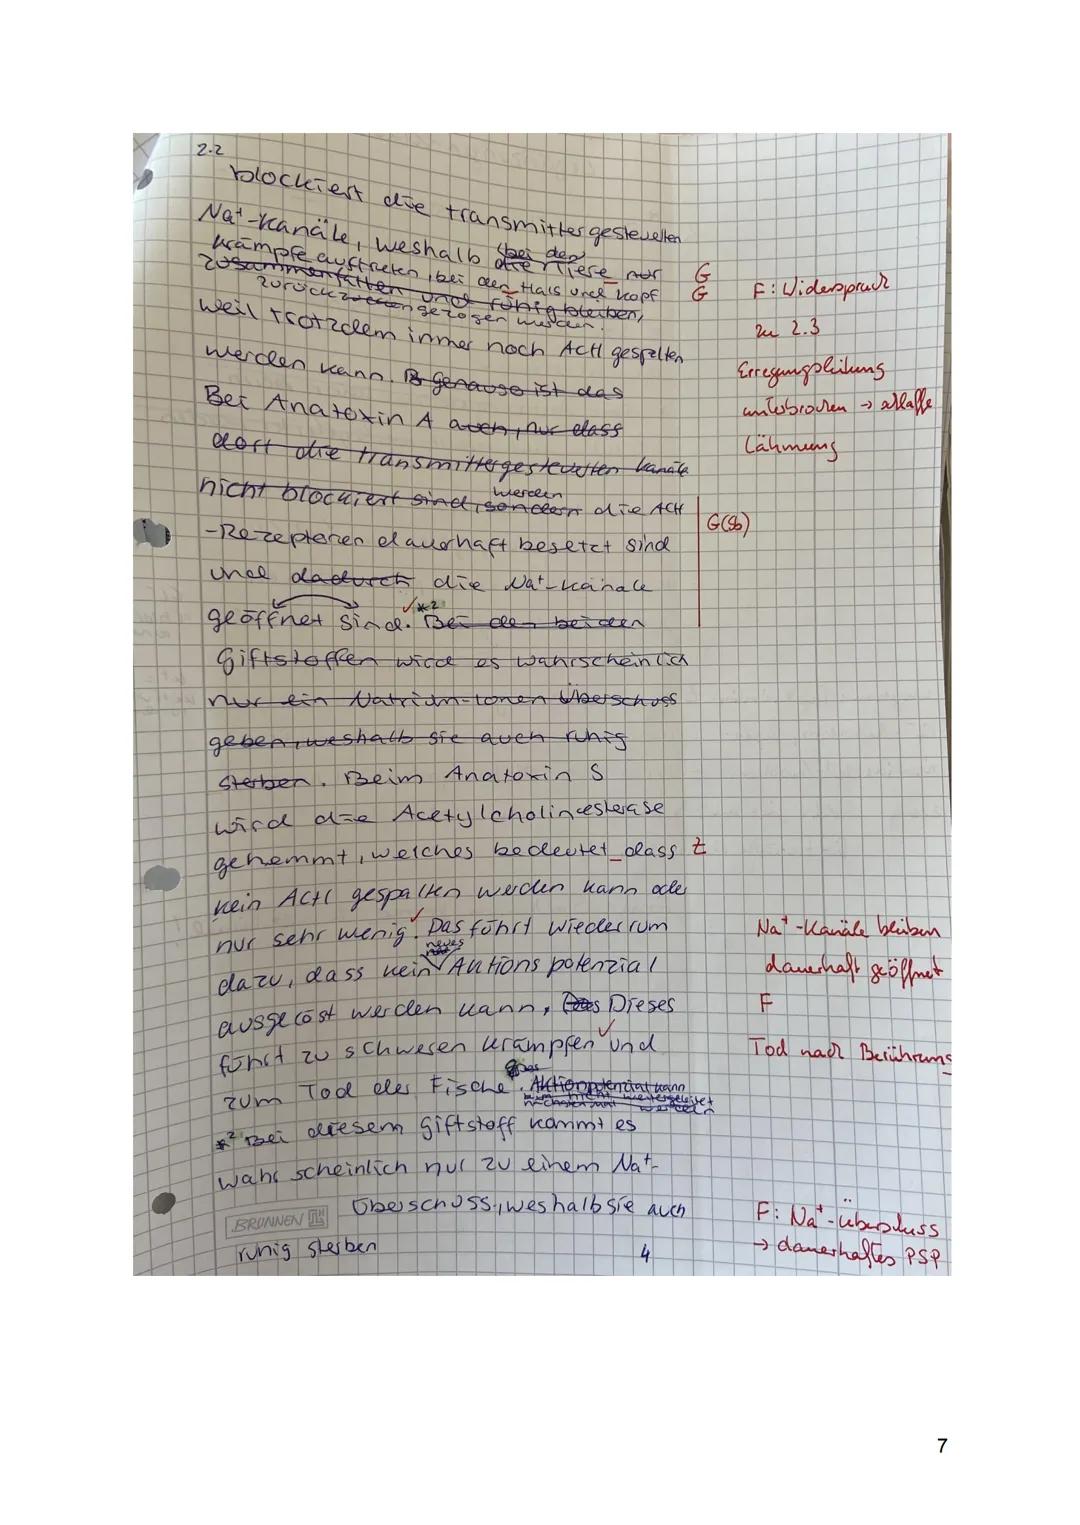 2.2
blockiert die transmittergesteuerten
Na⁺-Kanäle, weshalb bei den
die Tiere nur G
krämpfe auftreten, bei den Hals und Kopf G F: Widerspruch
zusammenfallen und ruhig bleiben,
zurück gezogen werden. zu 2.3
weil trotzdem immer noch ACH gespalten Erregungsleitung
werden kann. B genauso ist das unterbrochen → schlaffe
Bei Anatoxin A auch, nur dass Lähmung
dort die transmittergesteuerten kanäle
nicht blockiert sind, sondern werden die ACH G(Sb)
-Rezeptoren dauerhaft besetzt sind
und dadurch die Na⁺-kanäle
geöffnet sind. ✓ *² Bei den beiden
Giftstoffen wird es wahrscheinlich
nur ein Natrium-Ionen Überschuss
geben, weshalb sie auch ruhig
sterben. Beim Anatoxin S
wird die Acetylcholinesterase
gehemmt, welches bedeutet_dass Z
kein ACH gespalten werden kann oder
nur sehr wenig. ✓ Das führt wiederrum Na⁺-Kanäle bleiben
dazu, dass kein neues Aktionspotenzial dauerhaft geöffnet
ausgelöst werden kann, Das Dieses F
führt zu schweren krämpfen ✓ und Tod nach Berührung
zum Tod des Fische. Das Aktionpotenzial kann
nicht weitergeleitet
nächsten mal werden
*² Bei diesem giftstoff kommt es
wahrscheinlich nur zu einem Na⁺-
Überschuss, weshalb sie auch F: Na⁺-überschuss
BRUNNEN
ruhig sterben 4 → dauerhaftes PSP
7